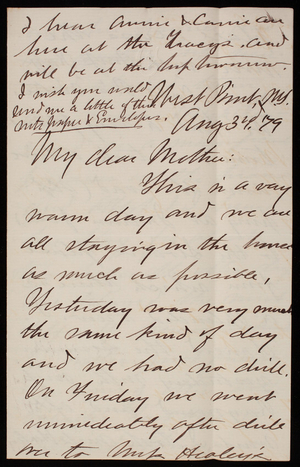 I hear Annie & Carrie are
here at the Tracy's and
will be at the hop tomorrow.
I wish you would
send me a little of this
note paper & Envelopes.
West Point, N.Y.
Aug 3rd, '79
My dear Mother:
This is a very
warm day and we are
all staying in the house
as much as possible,
Yesterday was very much
the same kind of day
and we had no drill.
On Friday we went
immediately after drill
over to